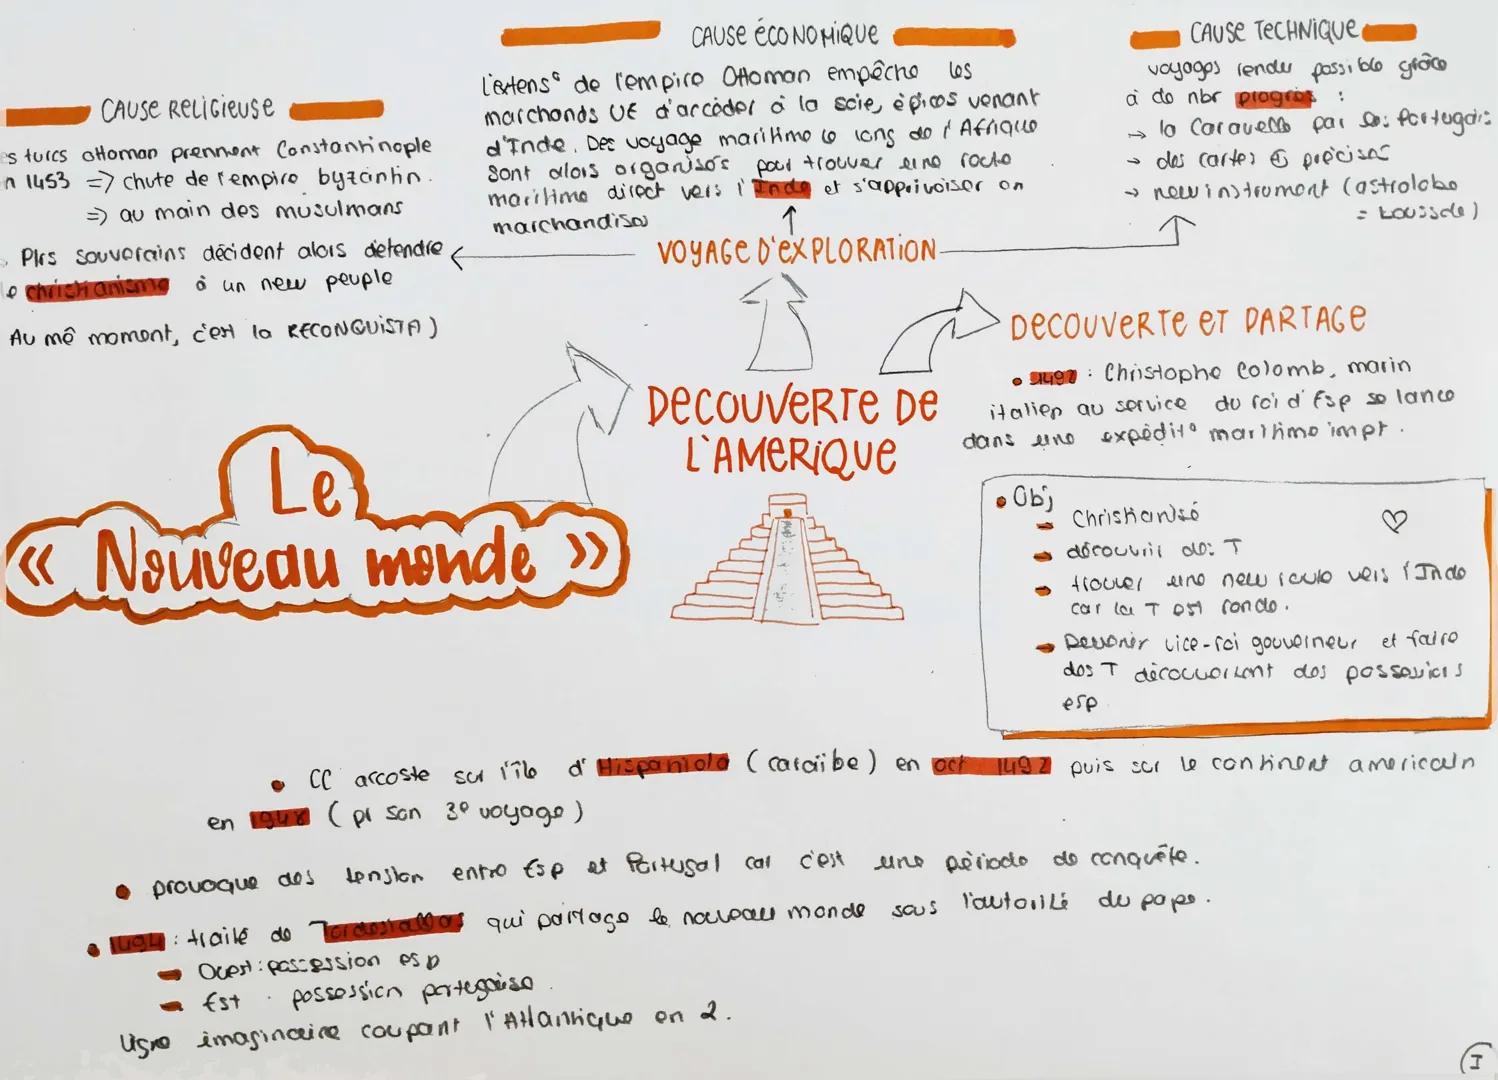 CAUSE RELIGIEUSE
es turcs ottoman prennent Constantinople
n 1453 => chute de l'empire byzantin.
=> au main des musulmans
Plrs souverains décident alors d'étendre
le christianisme à un new peuple
Au mê moment, c'est la RECONQUISTA)
CAUSE ÉCONOMIQUE
L'extens° de l'empire Ottoman empêche les
marchands UE d'accéder à la soie, épices venant
d'Inde. Des voyage maritime le long de l'Afrique
sont alors organisés pour trouver une route
maritime direct vers l'Inde et s'apprivoiser en
marchandises
CAUSE TECHNIQUE
voyages rendu possible grâce
à de nbr progrès :
→ la Caravelle par les Portugais
→ des cartes + précises
→ new instrument (astrolabe
= boussole)
VOYAGE D'EXPLORATION
DECOUVERTE DE
L'AMERIQUE
Le
« Nouveau monde »
DECOUVERTE ET PARTAGE
• 1492 : Christophe Colomb, marin
italien au service du roi d'Esp se lance
dans une expédit° maritime impt.
• Obj
Christianisé
découvrir des T
trouver une new route vers l'Inde
car la T est ronde.
Devenir vice-roi gouverneur et faire
des T découvrant des possessions
esp.
• CC arcoste sur l'île d'Hispaniola (caraïbe) en oct 1492 puis sur le continent americain
en 1948 (pr son 3e voyage)
• provoque des tension entre Esp et Portugal car c'est une période de conquête.
• 1494 : traité de Tordesillas qui partage le nouveau monde sous l'autorité du pape.
Ouest : possession esp
Est : possession portugaise.
Ligne imaginaire coupant l'Atlantique en 2.
I